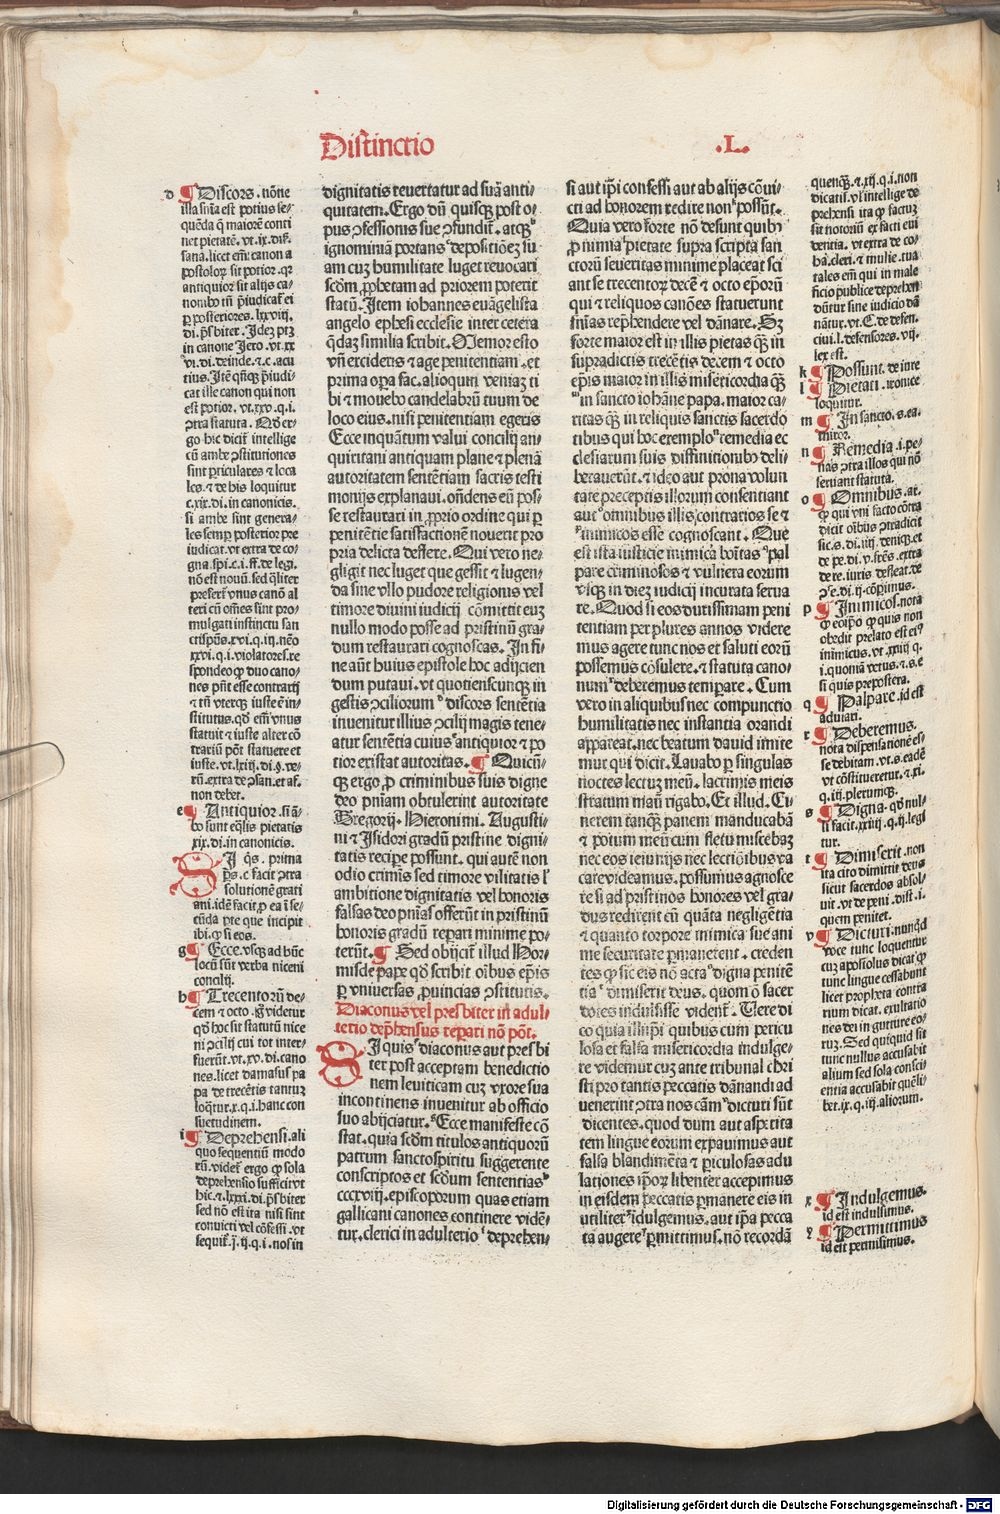 Distinctio .L.
d ¶ Discors . nōne
illa sn̄ia est potius se⸗
quēda q̄ maiorē conti
net pietatē. vt .ix. dis̄.
sana. licet em̄ canon a
postolorꝝ sit potior . qꝛ
antiquior sit alijs ca⸗
nonibꝰ
di. deinde. ⁊ .c. acu
tius. Itē
cat ille canon qui non
est potior . vt .xxv. q. i.
ꝯtra statuta . Nō er⸗
go hic dicit̄ intellige
cū ambe ꝯstitutiones
sint p̄ticulares ⁊ loca
les. ⁊ de his loquitur
c. xix. di. in canonicis.
si ambe sint genera⸗
les semꝑ posterior pre
iudicat. vt extra de co⸗
gna. spi. c. i. ff. de legi.
nō est nouū. sed q̄liter
prefert̄ vnus canō al
teri cū om̄es sint pro⸗
mulgati instinctu san
cti
respondeo ꝙ duo cano⸗
nes pn̄t esse contrarij
⁊ tn̄ vterqꝫ iuste ē in⸗
stitutus. qd̄ em̄ vnus
statuit ⁊ iuste alter cō
trariū pōt statuere et
iuste. vt .lxiij. di. §. ve⸗
rū. extra de ꝯsan. et af.
non debet.
e ¶ Antiquior. si ā⸗
bo sunt eq̄lis pietatis
xix. di. in canonicis.
SI qs̄ . prima
ps̄. c facit ꝯtra
solutionē grati
ani. idē facit ꝓ ea ī se⸗
cūda pte que incipit
ibi. ꝙ si eos.
g ¶ Ecce. vsqꝫ ad hūc
locū sūt verba niceni
concilij.
h ¶ Trecentorū de⸗
cem ⁊ octo. §̄ videtur
qd̄ hoc sit statutū nice
ni ꝯcilij cui tot inter⸗
fuerūt. vt .xv. di. cano
nes. licet damasus pa
pa de trecētis tantuꝫ
loq̄tur. x. q. i. hanc con
suetudinem.
i ¶ Deprehensi. ali
quo sequentiū modo
rū. videt̄ ergo ꝙ sola
deprehensio sufficit vt
hic. ⁊ .lxxxi. di. p̄sbiter
sed nō est ita nisi sint
conuicti vel cōfessi. vt
sequit̄. ⁊ .ij. q. i. nos in
dignitatis reuertatur ad suā anti⸗
quitatem. Ergo dū quisqꝫ post o⸗
pus ꝯfessionis sue ꝯfundit̄. atqꝫ
ignominiā portans depositiōeꝫ su
am cuꝫ humilitate luget reuocari
scd̄m ꝓphetam ad priorem poterit
statū. Item iohannes euāgelista
angelo ephesi ecclesie inter cetera
q̄daꝫ similia scribit. Memor esto
vn̄ excideris ⁊ age penitentiam. et
prima oꝑa fac. alioquin veniaꝫ ti
bi ⁊ mouebo candelabrū tuum de
loco eius. nisi penitentiam egeris
Ecce inquātum valui concilij an⸗
quiritani antiquam plane ⁊ plenā
autoritatem sentētiam sacris testi
monijs explanaui. on̄dens eū pos⸗
se restaurari in ꝓprio ordine qui ꝑ
penitētie satisfactionē nouerit pro
pria delicta deflere. Qui vero ne⸗
gligit nec luget que gessit ⁊ lugen⸗
da sine vllo pudore religionis vel
timore diuini iudicij cōmittit euꝫ
nullo modo posse ad pristinū gra⸗
dum restaurari cognoscas. In fi⸗
ne aūt huius epistole hoc adijcien
dum putaui. vt quotienscunqꝫ in
gestis ꝯciliorum discors sentētia
inuenitur illius ꝯcilij magis tene⸗
atur sentētia cuius antiquior ⁊ po
tior existat autoritas. ¶ Quicū⸗
qꝫ ergo ꝓ criminibus suis digne
deo pn̄iam obtulerint autoritate
Gregorij. Hieronimi. Augusti⸗
ni ⁊ Isidori gradū pristine digni⸗
tatis recipe possunt. qui autē non
odio crimīs sed timore vilitatis l̄
ambitione dignitatis vel honoris
falsas deo pn̄ias offerūt in pristinū
honoris gradū repari minime po⸗
terūt. ¶ Sed obijcit̄ illud Hor⸗
misde pape qd̄ scribit oībus epīs
ꝑ vniuersas ꝓuincias ꝯstitutis.
Diaconus vel presbiter in adul⸗
terio dep̄hensus repari nō pōt.
SI quis diaconus aut presbi
ter post acceptam benedictio
nem leuiticam cuꝫ vxore sua
incontinens inuenitur ab officio
suo abijciatur. Ecce manifeste cō
stat. quia scd̄m titulos antiquorū
patrum sanctospiritu suggerente
conscriptos et scd̄um sententias
cccxviij. episcoporum quas etiam
gallicani canones continere vidē⸗
tur. clerici in adulterio deprehen⸗
si aut ip̄i confessi aut ab alijs cōui⸗
cti ad honorem redire non possūt.
Quia vero forte nō desunt quibꝰ
ꝓ nimia pietate supra scripta san
ctorū seueritas minime placeat sci
ant se trecentorꝫ decē ⁊ octo ep̄orū
qui ⁊ reliquos canōes statuerunt
sn̄ias rep̄hendere vel dānare. Sꝫ
forte maior est in illis pietas qꝫ in
supradictis trecētis decem ⁊ octo
epīs maior in illis misericordia qꝫ
in sancto iohāne papa. maior ca⸗
ritas qꝫ in reliquis sanctis sacerdo
tibus qui hoc exemplo remedia ec
clesiarum suis diffinitionibꝰ deli⸗
berauerūt. ⁊ ideo aut prona volun
tate preceptis illorum consentiant
aut omnibus illis contrarios se ⁊
inimicos esse cognoscant. Que
est ista iusticie inimica bōitas pal
pare criminosos ⁊ vulnera eorum
vsqꝫ in dieꝫ iudicij incurata serua
re. Quod si eos durissimam peni
tentiam per plures annos videre
mus agere tunc nos et saluti eorū
possemus cōsulere. ⁊ statuta cano⸗
num deberemus temꝑare. Cum
vero in aliquibus nec compunctio
humilitatis nec instantia orandi
appareat. nec beatum dauid imite
mur qui dicit. Lauabo ꝑ singulas
noctes lectuꝫ meū. lacrimis meis
stratum meū rigabo. Et illud. Ci
nerem tanqꝫ panem manducabā
⁊ potum meū cum fletu miscebaꝫ
nec eos ieiunijs nec lectiōibus va
care videamus. possumus agnosce
re si ad pristinos honores vel gra⸗
dus redirent cū quāta negligētia
⁊ quanto torpore inimica sue ani
me securitate ꝑmanerent. creden
tes ꝙ sic eis nō acta digna penitē
tia dimiserit deus. quom̄ ō sacer
dotes indulsisse vident̄. Vere di
co quia illi ip̄i quibus cum pericu
losa et falsa misericordia indulge⸗
re videmur cuꝫ ante tribunal chri
sti pro tantis peccatis dānandi ad
uenerint ꝯtra nos cām dicturi sūt
dicentes. quod dum aut asꝑita
tem lingue eorum expauimus aut
falsa blandimēta ⁊ ꝑiculosas adu
lationes ip̄orꝫ libenter accepimus
in eisdem peccatis ꝑmanere eis in
utiliter īdulgemus. aut ip̄a pecca
ta augere ꝑmittimus. nō recordā
quenqꝫ. ⁊ .xij. q. i. non
dicatis. vl̄ intellige de
prehensi ita ꝙ factuꝫ
sit notoriū ex facti eui
dentia. vt extra de co⸗
ha. cleri. ⁊ mulie. tua
tales em̄ qui in male
ficio publice deprehen
dūtur sine iudicio dā
nātur. vt .C. de defen.
ciui. l. defensores. vij.
lex est.
k ¶ Possunt. de iure
l ¶ Pietati. ironice
loquitur.
m ¶ In sancto. s. ea.
miror.
n ¶ Remedia. i. pe⸗
nas ꝯtra illos qui nō
seruant statuta.
o ¶ Omnibus. ar.
ꝙ qui vni facto cōtra
dicit oībus ꝯtradicit
p ¶ Inimicos. nota
ꝙ eo ip̄o ꝙ quis non
obedit prelato est eiꝰ
inimicus. vt .xxiij. q.
i. quoniā vetus. ⁊ .s. e
si quis prepostera.
q ¶ Palpare. id est
adulari.
r ¶ Deberemus.
nota dispensationē es⸗
se debitam. vt .s. eadē
vt cōstitueretur. ⁊ .xi.
q. iij. plerumqꝫ.
s ¶ Digna. qd̄ nul⸗
li facit. xxiiij. q. ij. legi
tur.
t ¶ Dimiserit. non
ita cito dimittit deus
sicut sacerdos absol⸗
uit. vt de peni. dist. i.
quem penitet.
v ¶ Dicturi. nunqd̄
voce tunc loquentur
cuꝫ apostolus dicat ꝙ
tunc lingue cessabunt
licet propheta contra
rium dicat. exultatio
nes dei in gutture eo⸗
ruꝫ. Sed quicquid sit
tunc nullus accusabit
alium sed sola consci⸗
entia accusabit quēli⸗
bet. ix. q. iij. aliorum.
x ¶ Indulgemus.
id est indulsimus.
y ¶ Permittimus
id est permisimus.
Digitalisierung gefördert durch die Deutsche Forschungsgemeinschaft - DFG